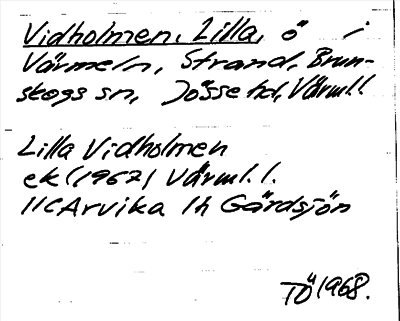 Vidholmen, Lilla, ö i
Värmeln, Strand, Brun-
skogs sn, Jösse hd, Värml.l.
Lilla Vidholmen
ek (1967) Värml.l.
11C Arvika 1h Gärdsjön
TÖ 1968.